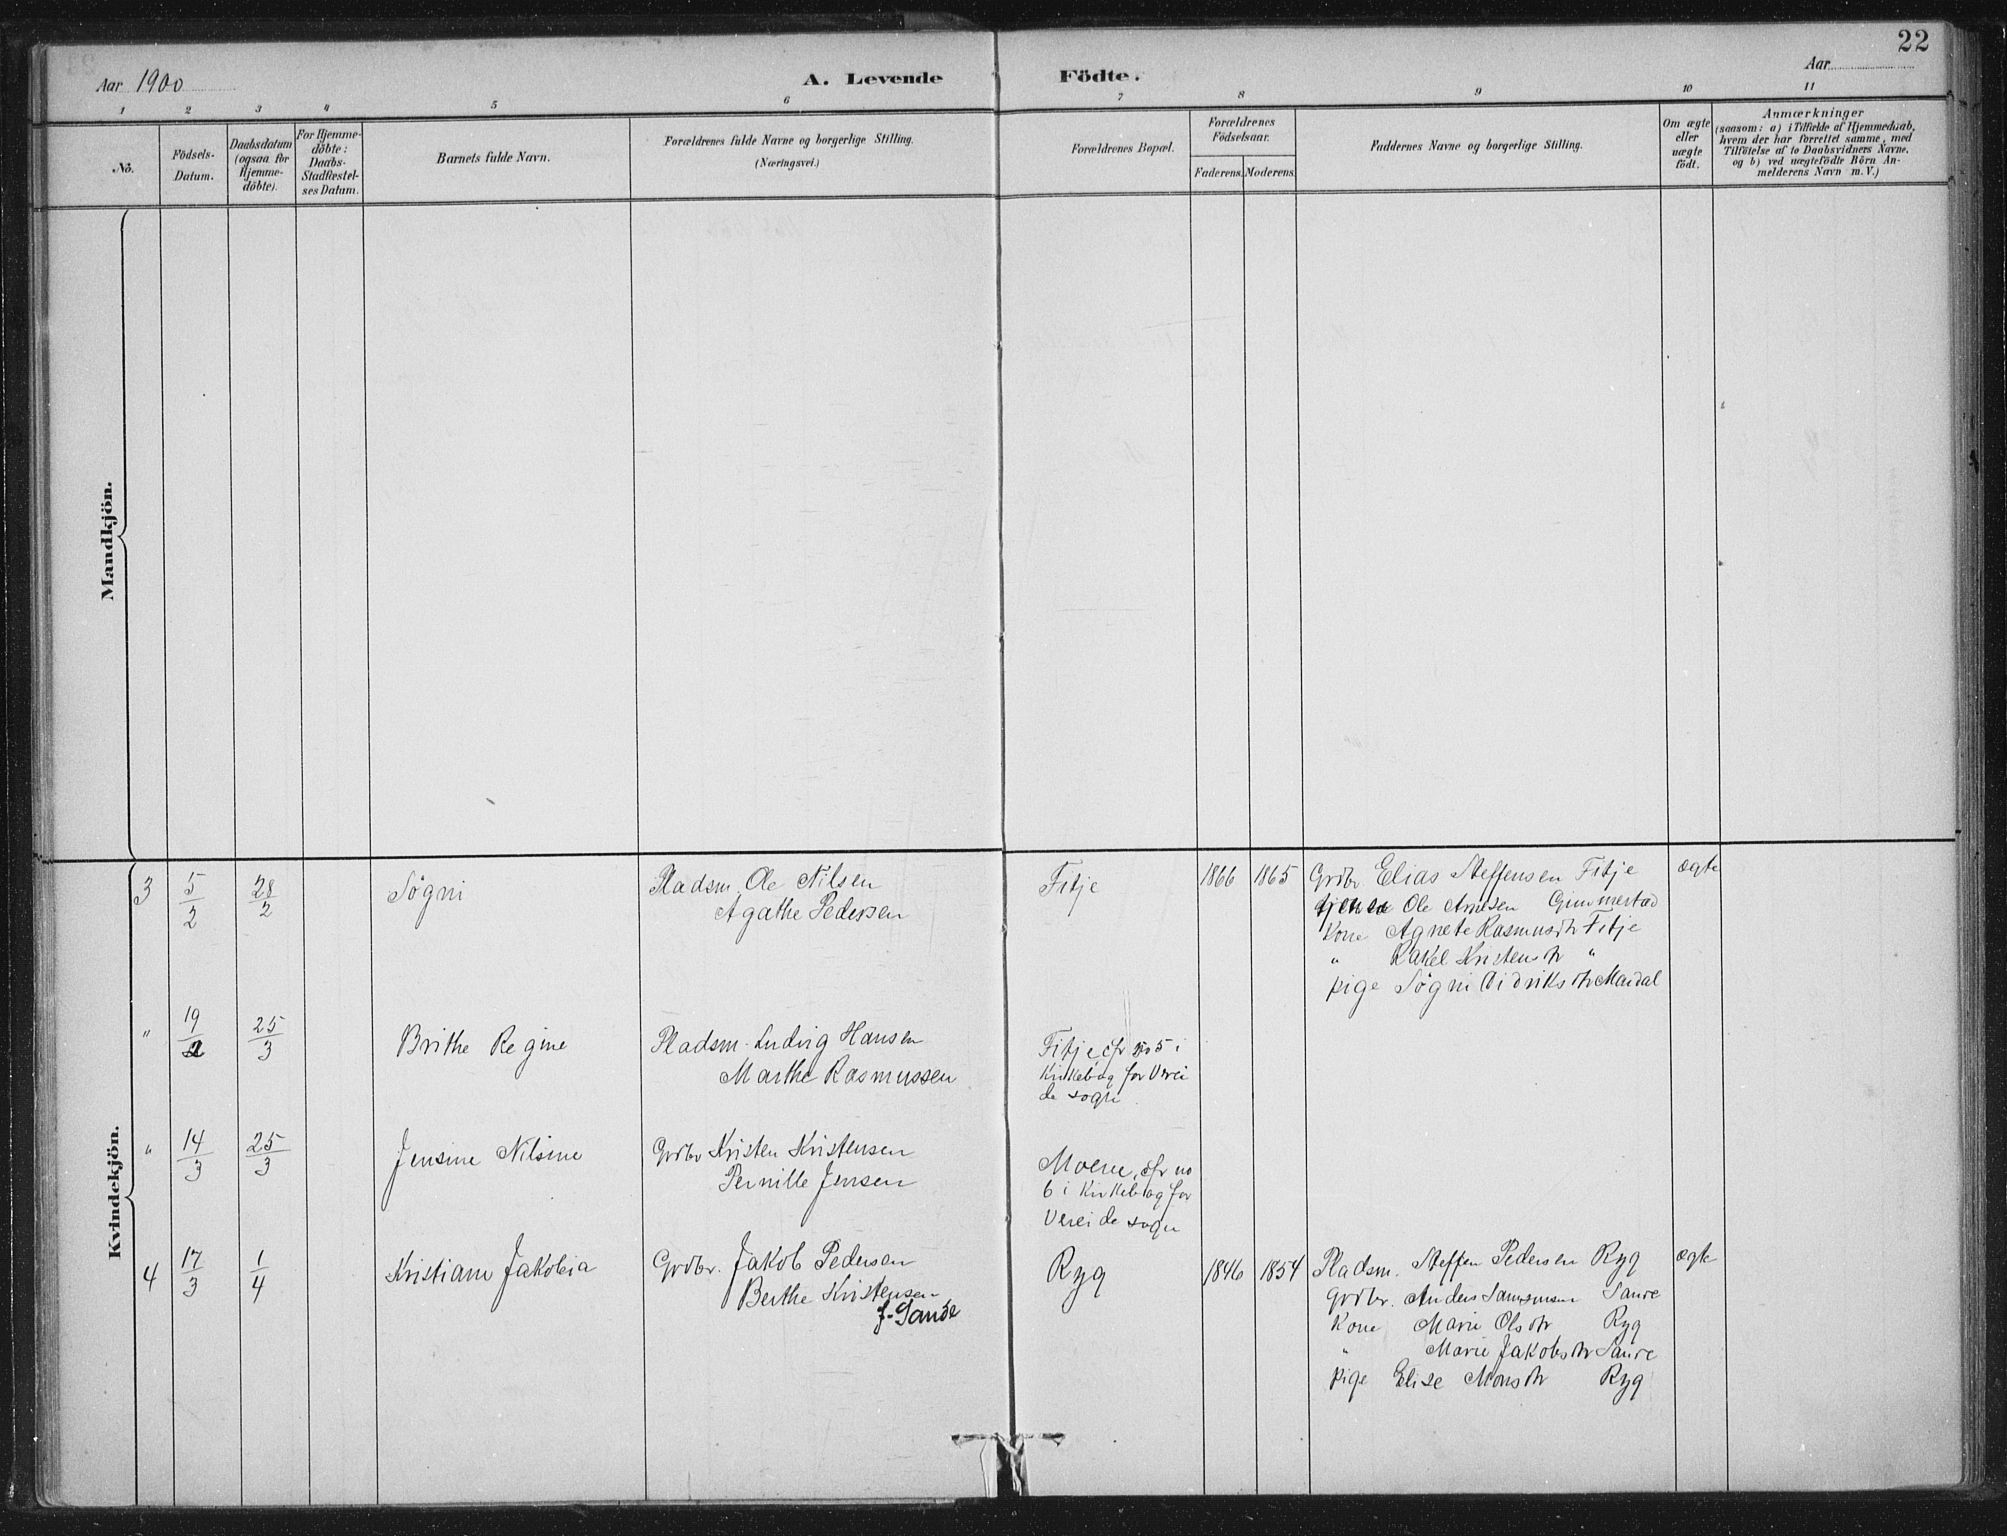 22
Aar 1900
A. Levende Födte.
Aar
1 2 3 4 5 6 7 8 9 10 11
No.
Födsels-
Datum.
Daabsdatum
(ogsaa for
Hjemme-
döbte).
For Hjemme-
döbte:
Daabs-
Stadfæstel-
ses Datum.
Barnets fulde Navn.
Forældrenes fulde Navne og borgerlige Stilling.
(Næringsvei.)
Forældrenes Bopæl.
Forældrenes
Födselsaar.
Faderens. Moderens.
Faddernes Navne og borgerlige Stilling.
Om ægte
eller
uægte
födt.
Anmærkninger
(saasom: a) i Tilfælde af Hjemmedaab,
hvem der har forrettet samme, med
Tilföielse af to Daabsvidners Navne,
og b) ved uægtefödte Börn An-
melderens Navn m. V.)
Mandkjön.
Kvindekjön.
3 5/2 28/2 Søgni Pladsm. Ole Nilsen Fitje 1866 1865 Grdbr Elias Steffensen Fitje ægte
Agathe Pedersen Ole Gimmestad
Kone Agnete Rasmusdtr Fitje
" Rakel Kristensdtr "
pige Søgni Didriksdtr Mardal
" 19/2 25/3 Brithe Regine Pladsm. Ludvig Hansen Fitje cfr no 5 i
Marthe Rasmussen Kirkebog for Verei
de sogn
" 14/3 25/3 Jensine Nilsine Grdbr Kristen Kristensen Moene, cfr no
Pernille Jensen 6 i Kirkebog for
Vereide sogn
4 17/3 1/4 Kristiane Jakobia Grdbr. Jakob Pedersen Ryg 1846 1854 Pladsm. Steffen Pedersen Ryg ægte
Berthe Kristensen Grdbr. Anders Saure
f. Sande Kone Marie Olsdtr Ryg
" Marie Jakobsdtr Saure
pige Elise Monsdtr Ryg